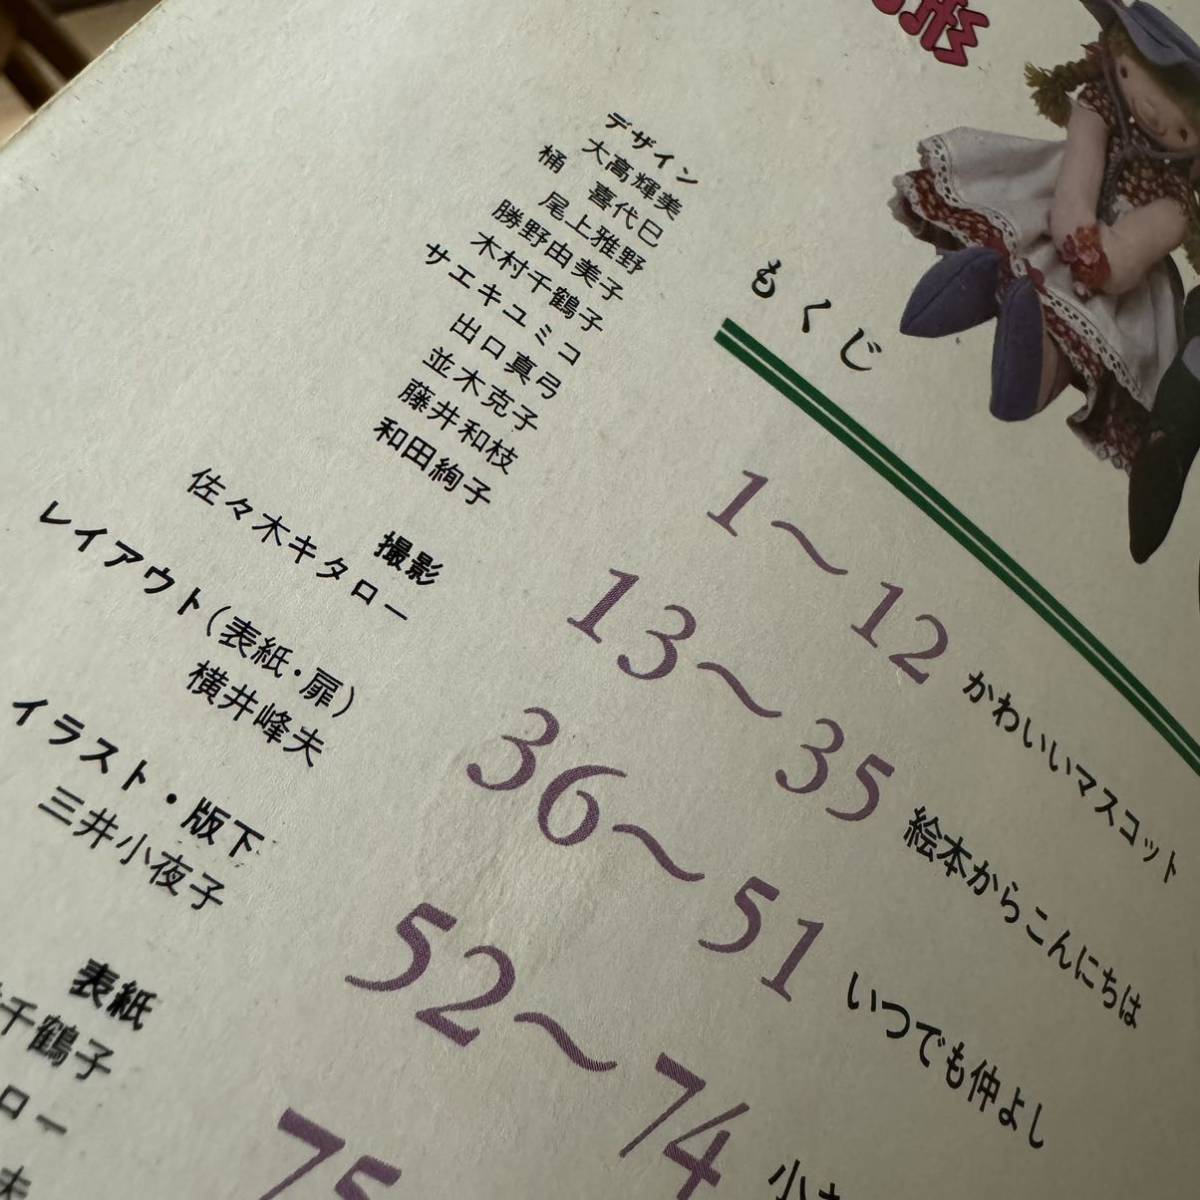 形
デザイン
大高輝美
桶 喜代巳
尾上雅野
勝野由美子
木村千鶴子
サエキユミコ
出口真弓
並木克子
藤井和枝
和田絢子
撮影
佐々木キタロー
レイアウト(表紙・扉)
横井峰夫
イラスト・版下
三井小夜子
表紙
千鶴子
ロー
夫
もくじ
1〜12 かわいいマスコット
13〜35 絵本からこんにちは
36〜51 いつでも仲よし
52〜74 小
75